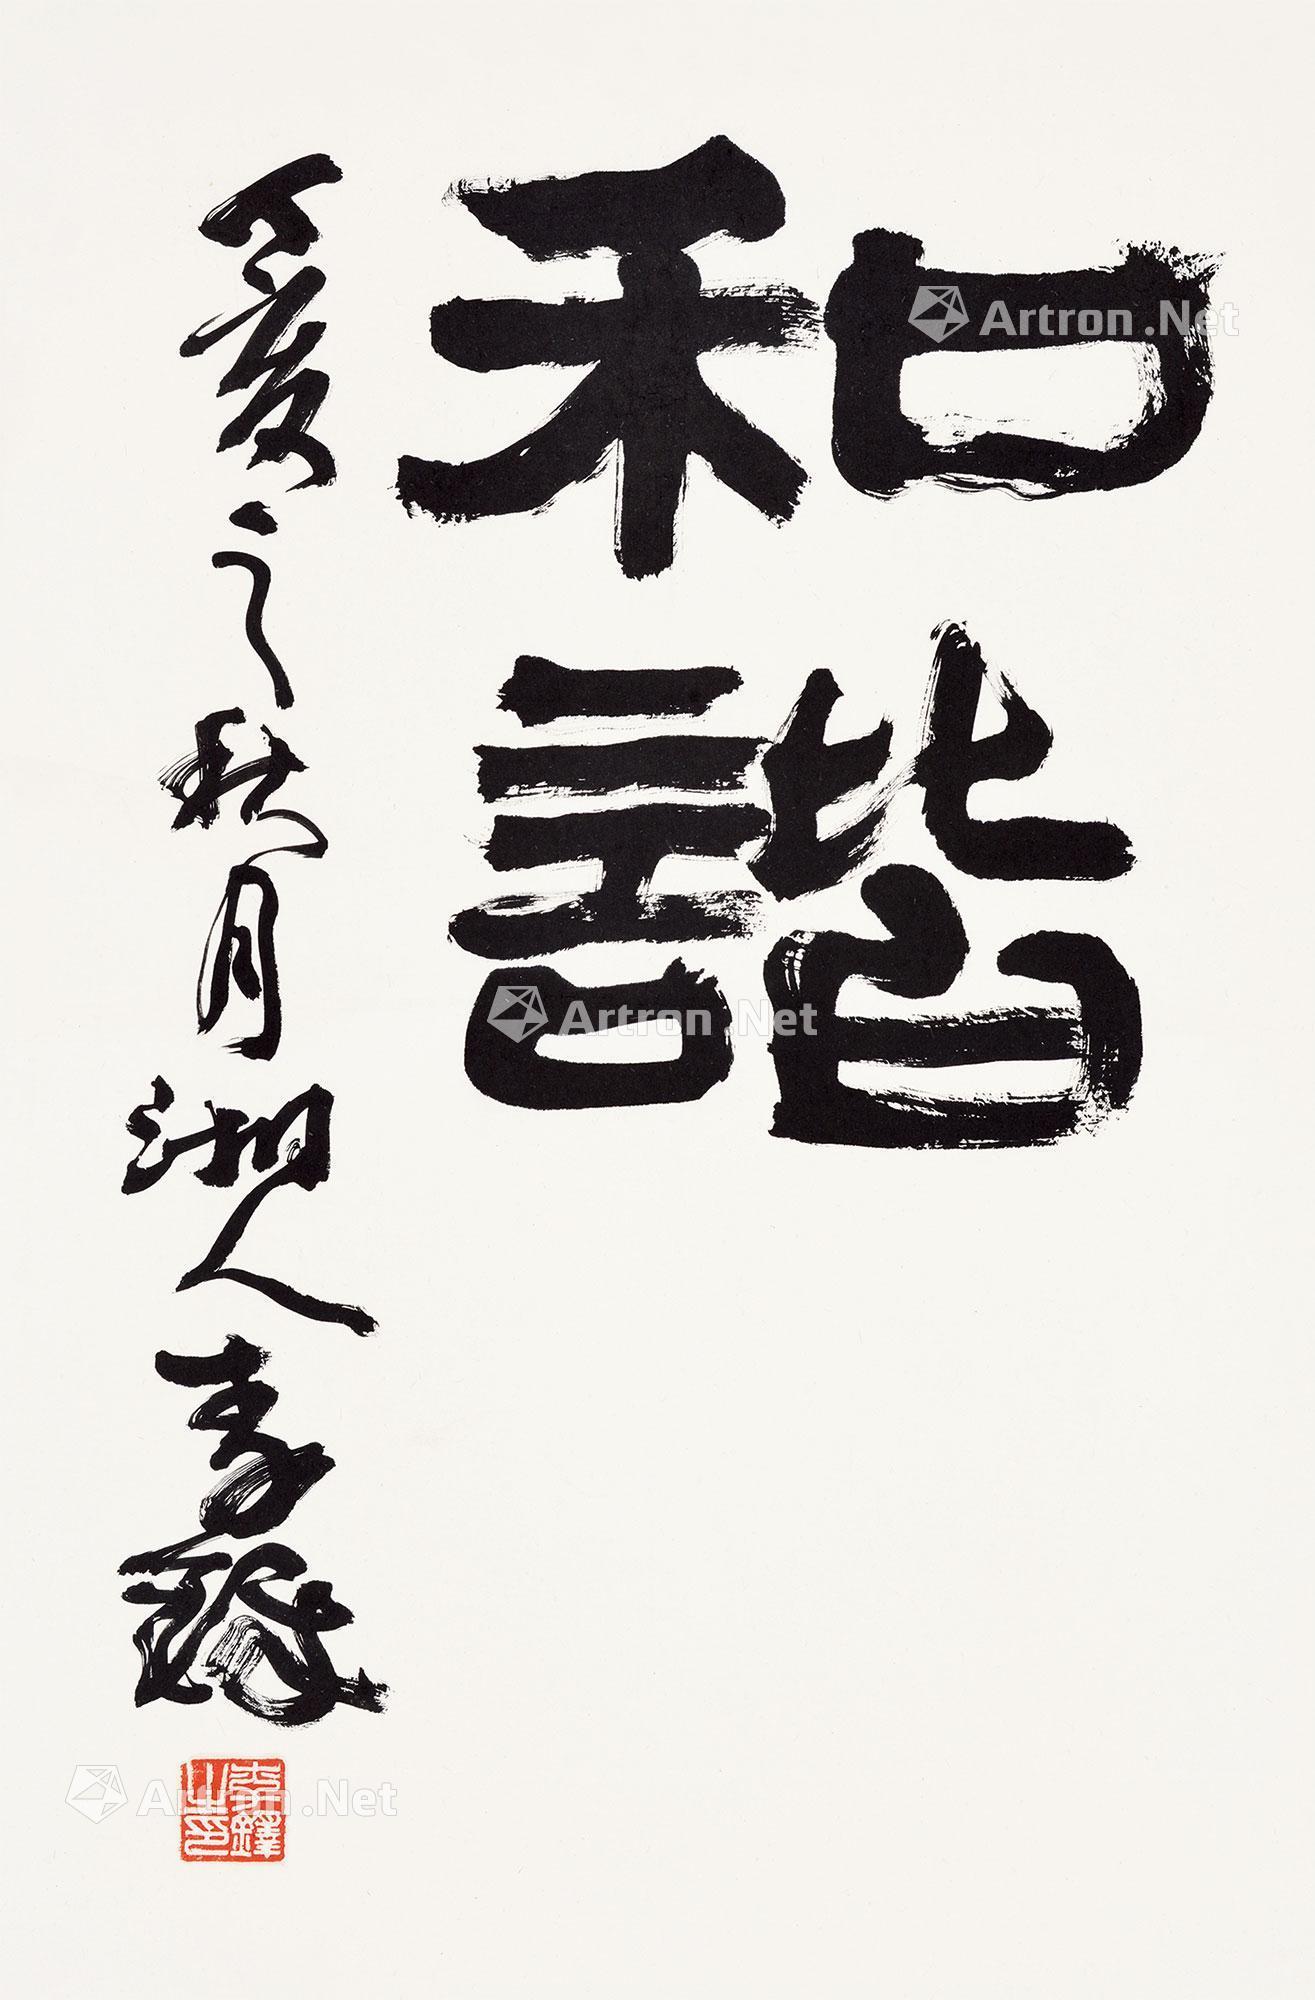 和諧
丁亥之秋月湖人李鐸
李鐸之印
Artron.Net
Artron.Net
Artron.Net